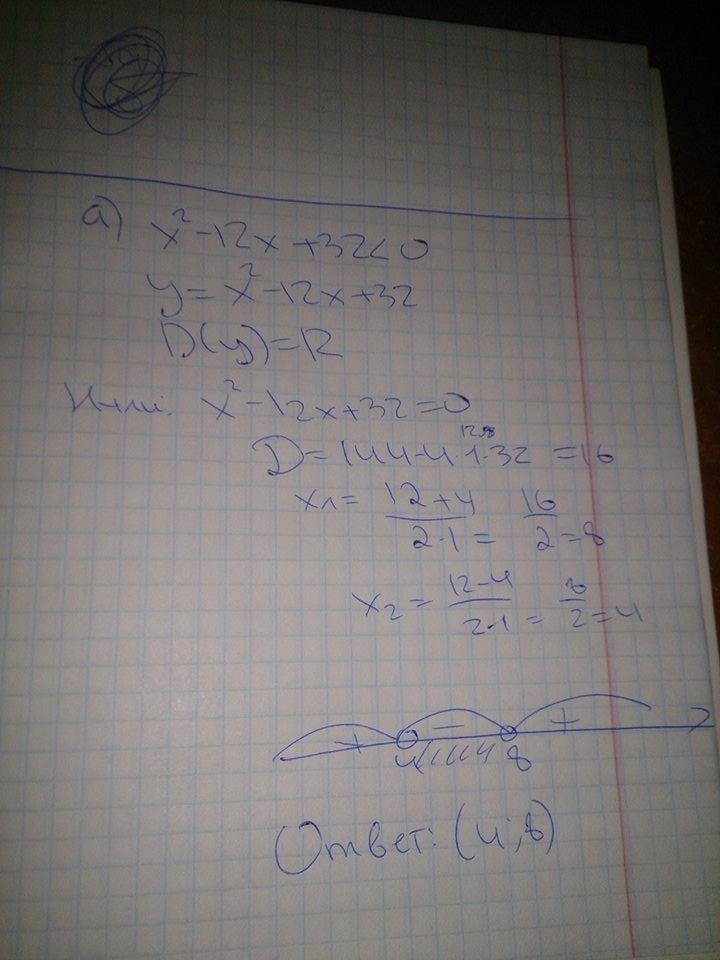 а) x²-12x+32<0
y=x²-12x+32
D(y)=R
Нули: x²-12x+32=0
128
D=144-4·1·32=16
x₁= 12+4/2·1 = 16/2=8
x₂= 12-4/2·1 = 8/2=4
+ - +
4 8
Ответ: (4;8)